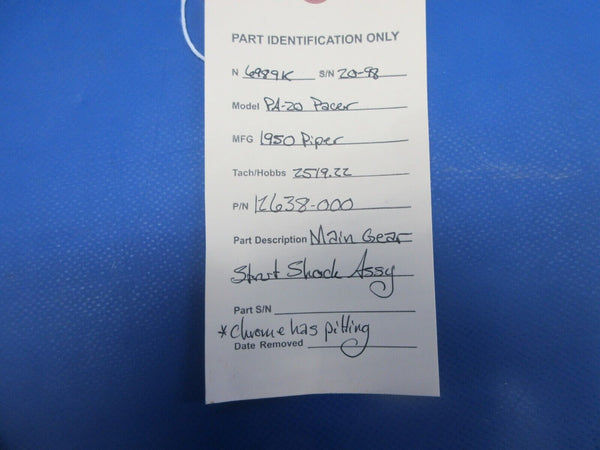 PART IDENTIFICATION ONLY
N 6989K S/N 20-98
Model PA-20 Pacer
MFG 1950 Piper
Tach/Hobbs 2519.22
P/N 12638-000
Part Description Main Gear
Strut Shock Assy
Part S/N
*Chrome has pitting
Date Removed